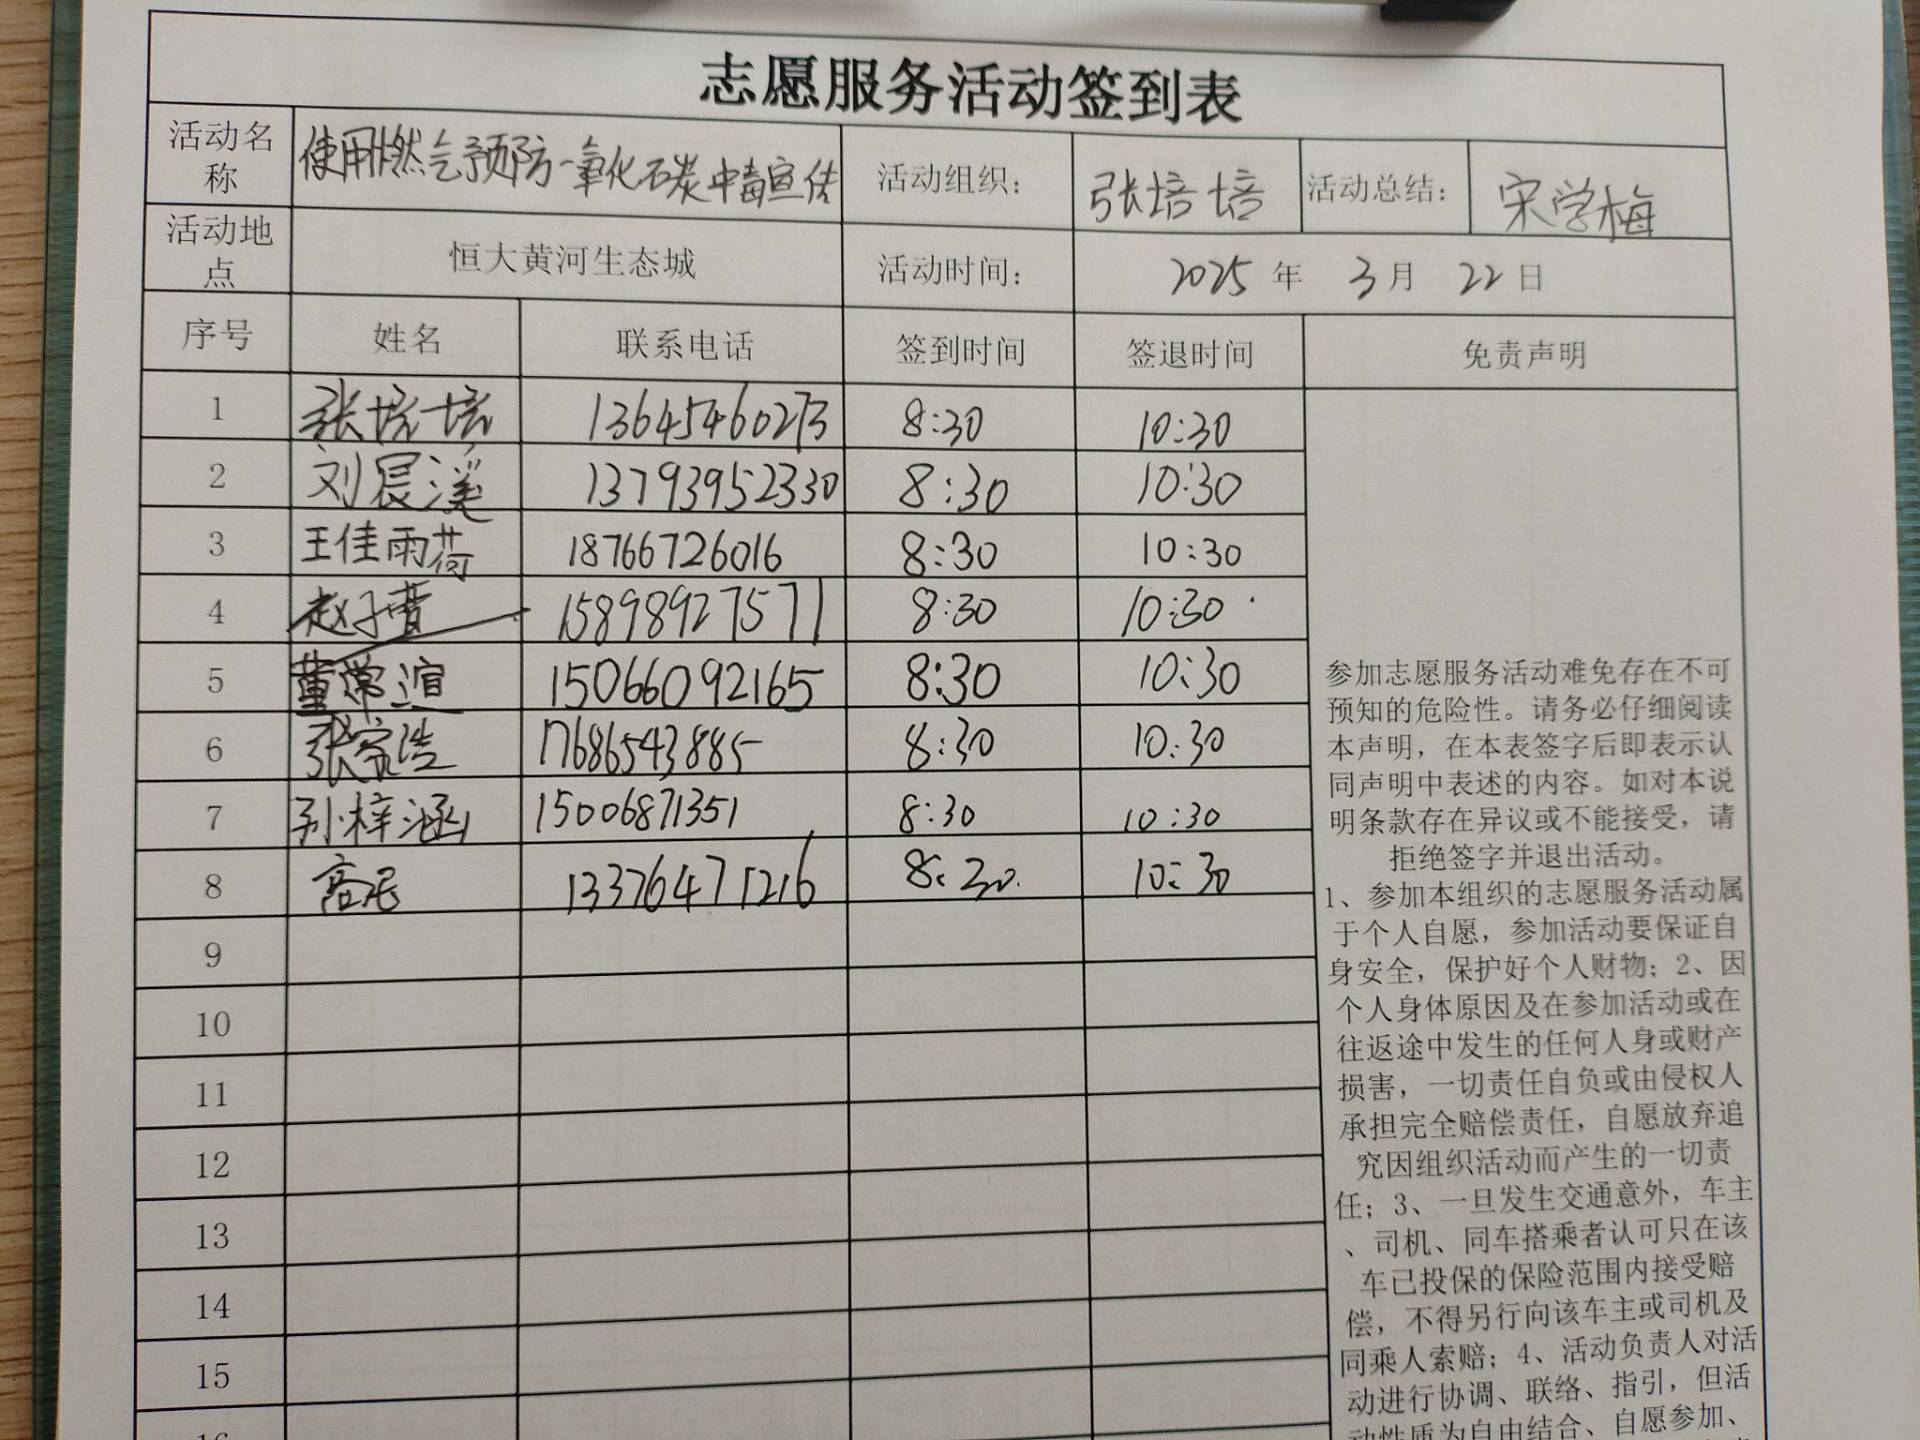 志愿服务活动签到表
活动名称 使用燃气预防一氧化碳中毒宣传 活动组织： 张培培 活动总结： 宋学梅
活动地点 恒大黄河生态城 活动时间： 2025 年 3 月 22 日
序号 姓名 联系电话 签到时间 签退时间 免责声明
1 张培培 13645460273 8:30 10:30
2 刘宸溪 13793952330 8:30 10:30
3 王佳雨荷 18766726016 8:30 10:30
4 赵子萱 15898927571 8:30 10:30
5 董常渲 15066092165 8:30 10:30
6 张家浩 17686543885 8:30 10:30
7 孙梓涵 15006871351 8:30 10:30
8 13376471216 8:30 10:30
9
10
11
12
13
14
15
参加志愿服务活动难免存在不可
预知的危险性。请务必仔细阅读
本声明，在本表签字后即表示认
同声明中表述的内容。如对本说
明条款存在异议或不能接受，请
拒绝签字并退出活动。
1、参加本组织的志愿服务活动属
于个人自愿，参加活动要保证自
身安全，保护好个人财物；2、因
个人身体原因及在参加活动或在
往返途中发生的任何人身或财产
损害，一切责任自负或由侵权人
承担完全赔偿责任，自愿放弃追
究因组织活动而产生的一切责
任；3、一旦发生交通意外，车主
、司机、同车搭乘者认可只在该
车已投保的保险范围内接受赔
偿，不得另行向该车主或司机及
同乘人索赔；4、活动负责人对活
动进行协调、联络、指引，但活
动性质为自由结合、自愿参加、